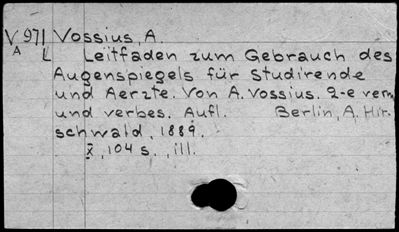 V 971 Vossius, A.
A L Leitfaden zum Gebrauch des
Augenspiegels für Studirende
und Aerzte. Von A. Vossius. 2-e verm.
und verbes. Aufl. Berlin, A. Hir-
schwald, 1889.
X, 104 s., ill.